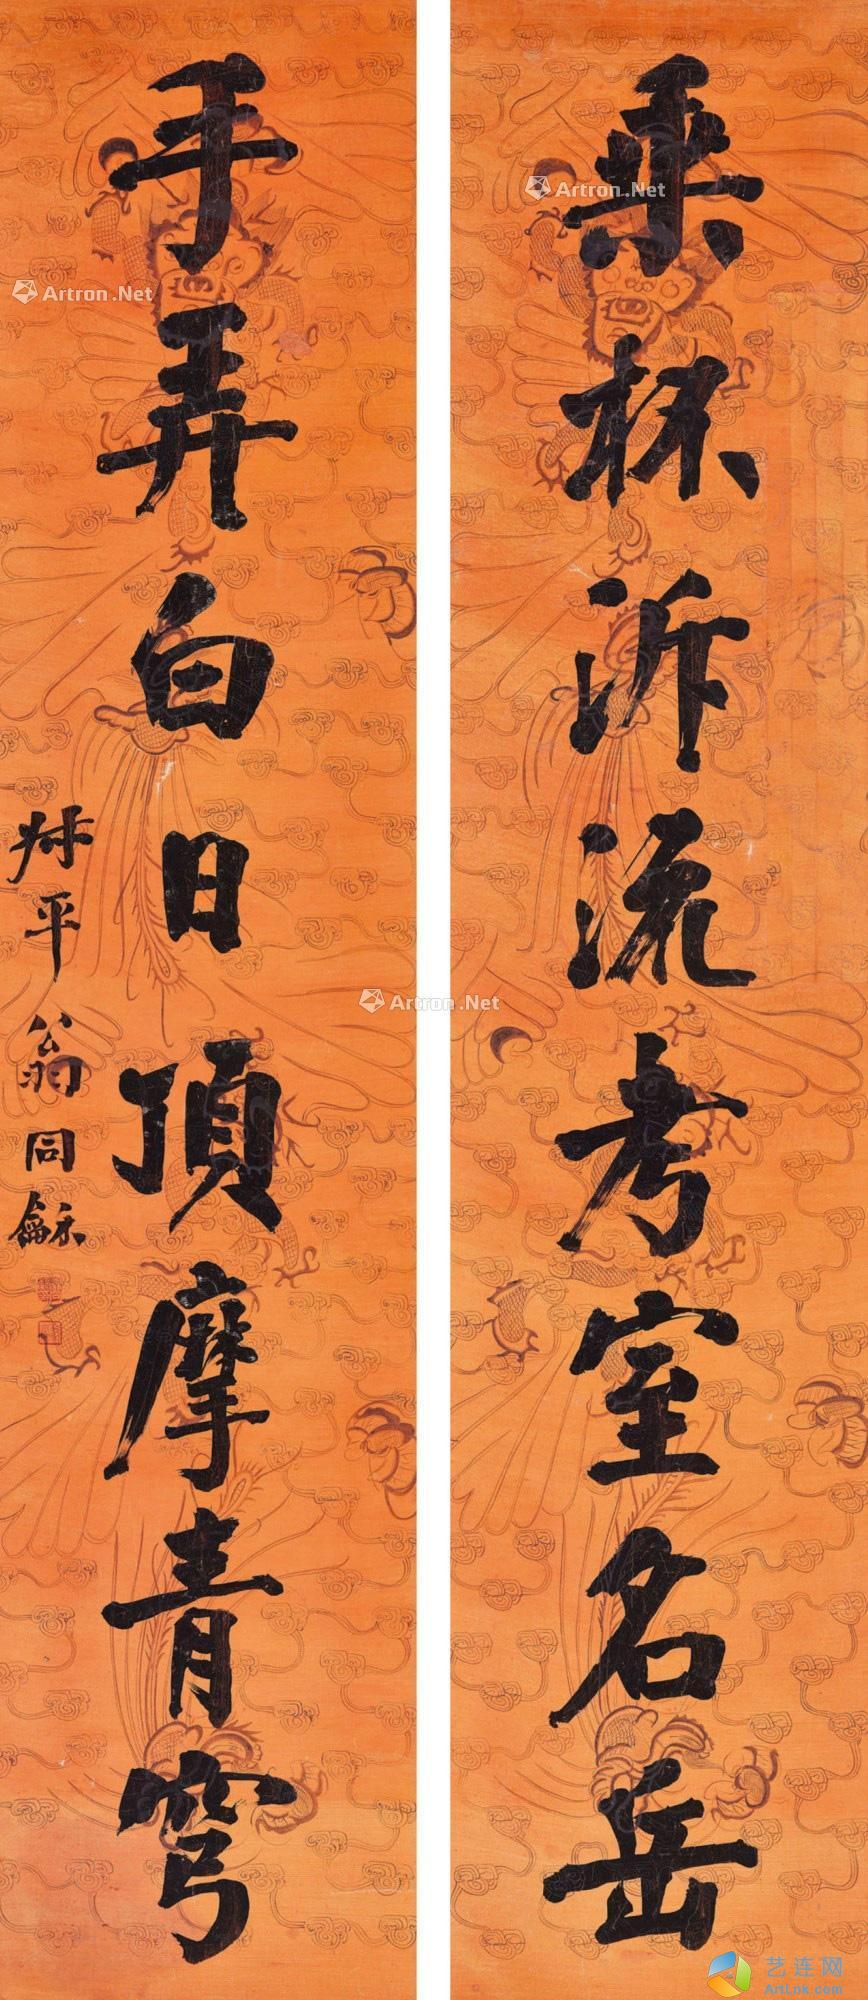 乘杯泝流考室名岳
手弄白日頂摩青穹
叔平翁同龢
Artron.Net
Artron.Net
Artron.Net
艺连网
ArtLnk.com